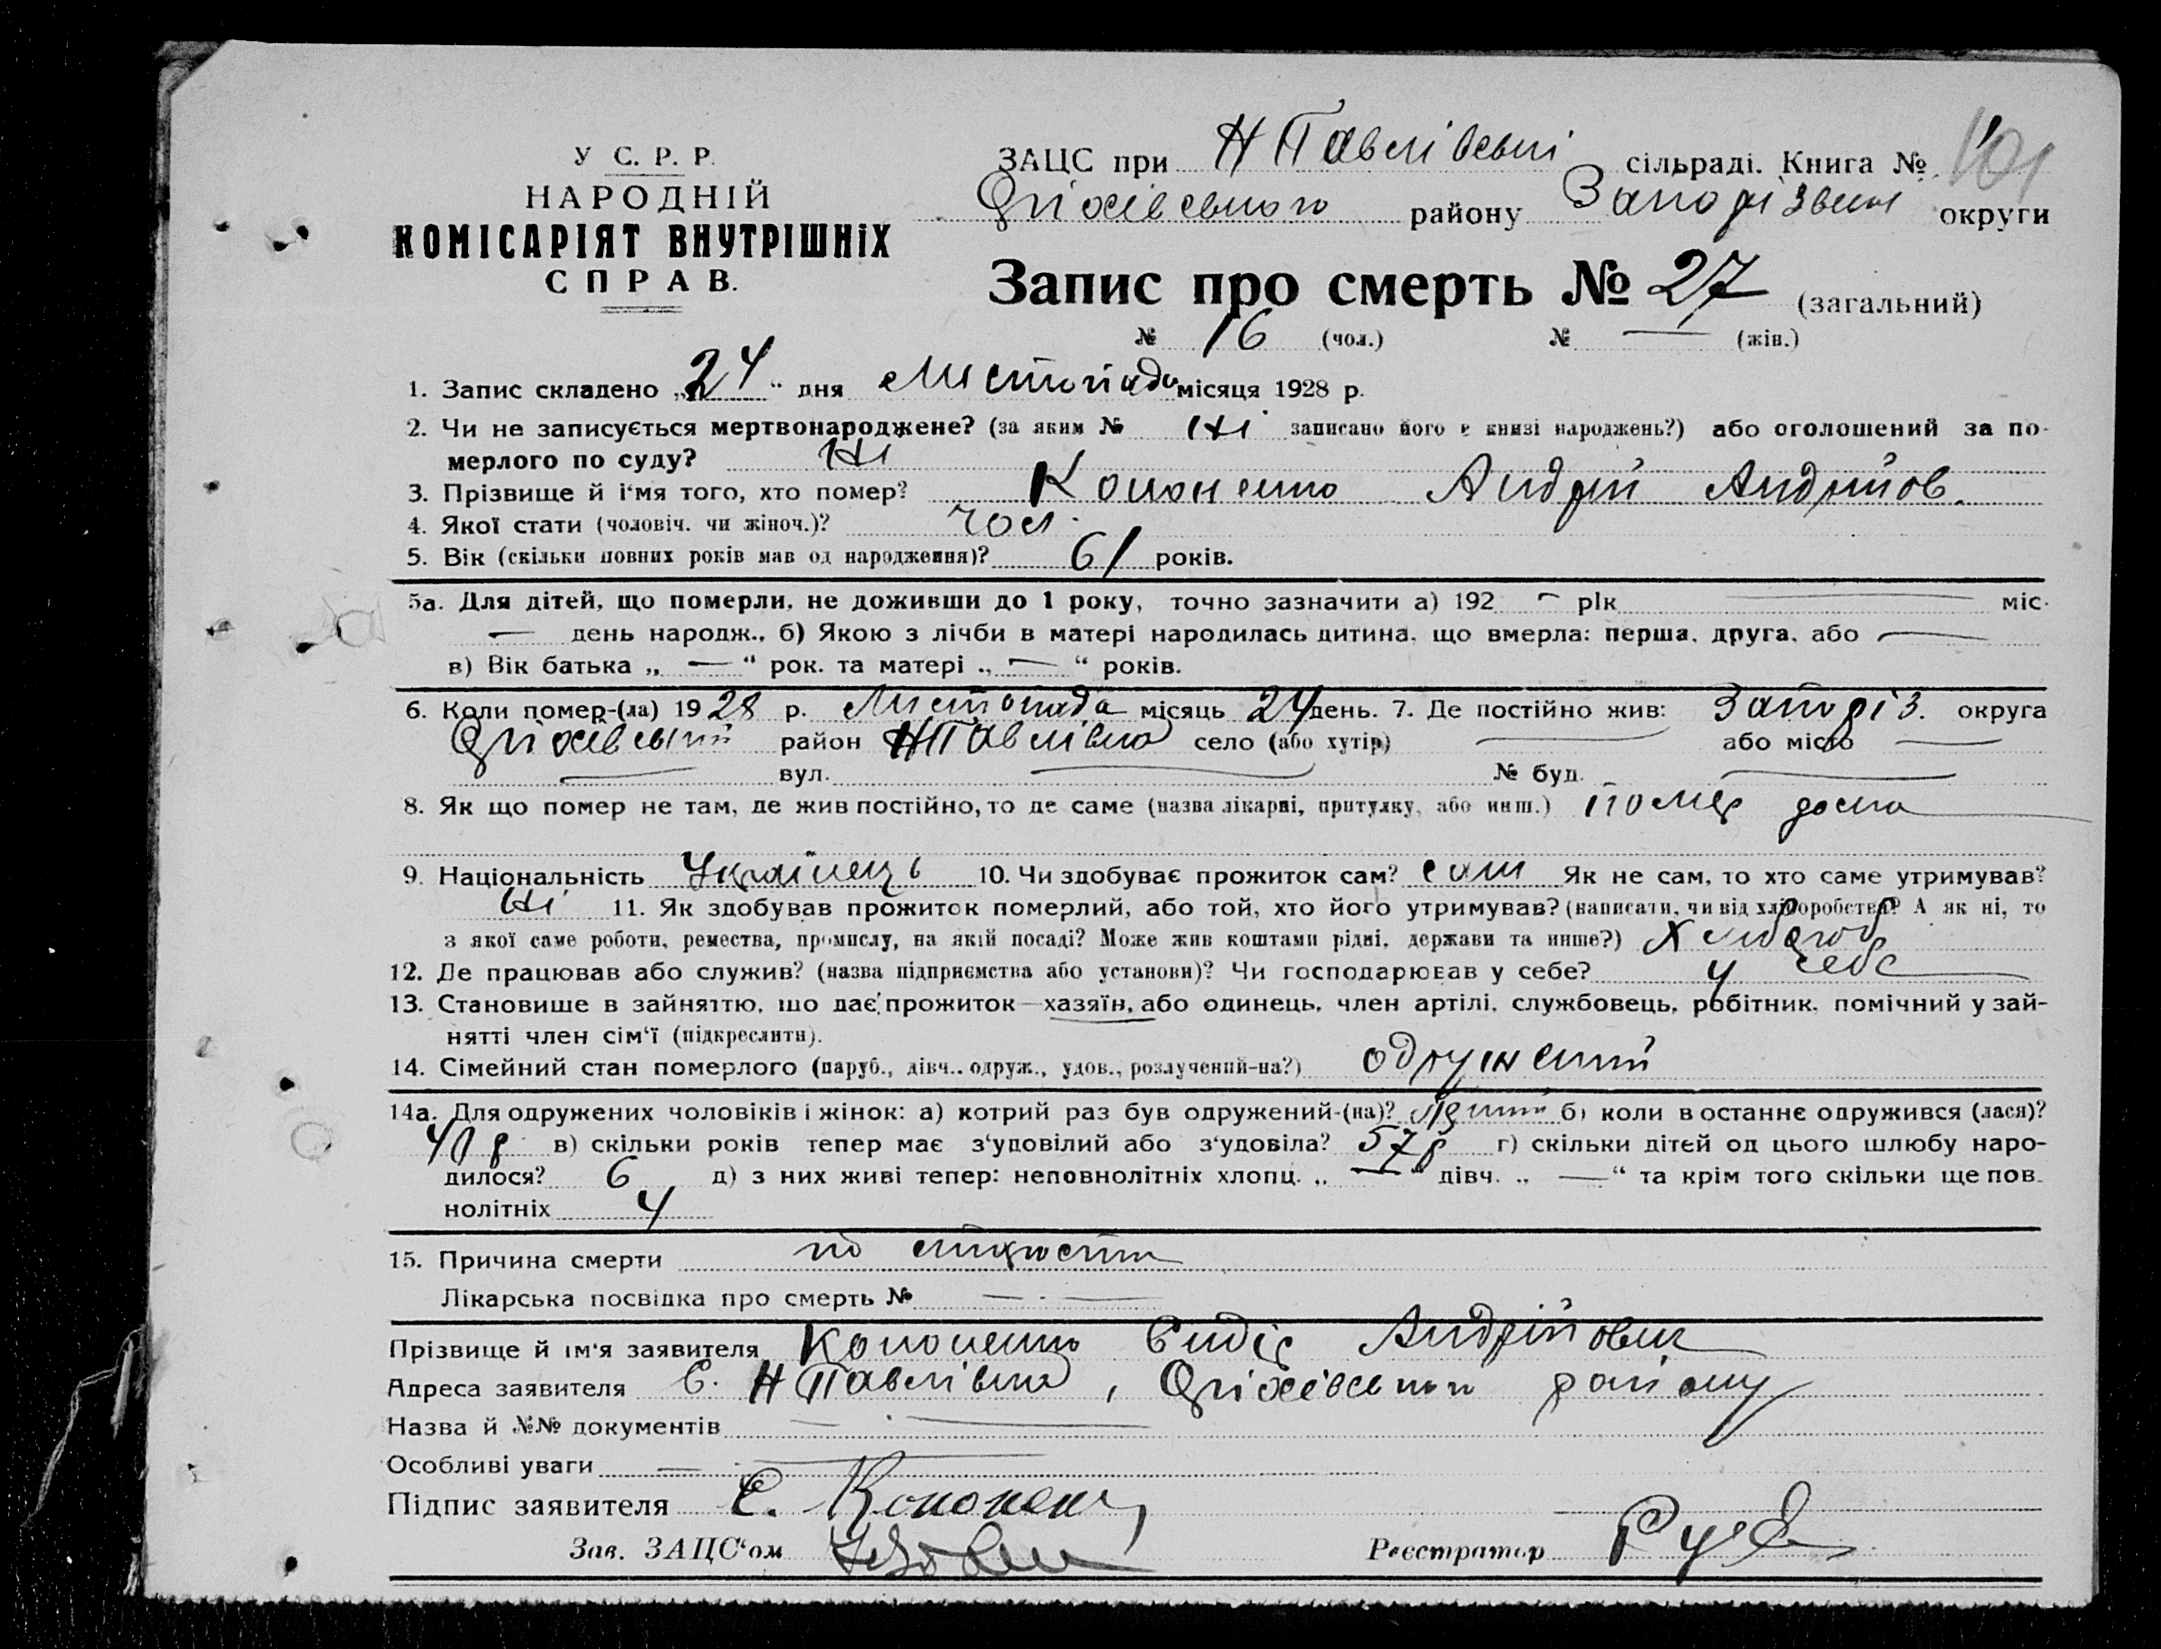 У С. Р. Р.
НАРОДНІЙ
КОМІСАРІЯТ ВНУТРІШНІХ
СПРАВ.
ЗАЦС при Н Павлівські сільраді. Книга № 101
Оріхівського району Запорізької округи
Запис про смерть № 27 (загальний)
№ 16 (чол.) № — (жін.)
1. Запис складено „24“ дня Листопада місяця 1928 р.
2. Чи не записується мертвонароджене? (за яким № Ні записано його в книзі народжень?) або оголошений за по-
мерлого по суду? Ні
3. Прізвище й і'мя того, хто помер? Кононенко Андрій Андрійов.
4. Якої стати (чоловіч. чи жіноч.)? чол.
5. Вік (скільки повних років мав од народження)? 61 років.
5а. Для дітей, що померли, не доживши до 1 року, точно зазначити а) 192 — рік — міс.
— день народж., б) Якою з лічби в матері народилась дитина, що вмерла: перша, друга, або —
в) Вік батька „ — “ рок. та матері „ — “ років.
6. Коли помер-(ла) 1928 р. Листопада місяць 24 день. 7. Де постійно жив: Запоріз. округа
Оріхівський район НПавлівка село (або хутір) — або місто —
— вул. — № буд. —
8. Як що помер не там, де жив постійно, то де саме (назва лікарні, притулку, або инш.) помер дома
9. Національність Українець 10. Чи здобуває прожиток сам? сам Як не сам, то хто саме утримував?
Ні 11. Як здобував прожиток померлий, або той, хто його утримував? (написати, чи від хліборобства? А як ні, то
з якої саме роботи, ремества, промислу, на якій посаді? Може жив коштами рідні, держави та инше?) Хлібороб
12. Де працював або служив? (назва підприємства або установи)? Чи господарював у себе? у себе
13. Становище в зайняттю, що дає прожиток—хазяїн, або одинець, член артілі, службовець, робітник, помічний у зай-
нятті член сім'ї (підкреслити).
14. Сімейний стан померлого (паруб., дівч.. одруж., удов., розлучений-на?) одружений
14а. Для одружених чоловіків і жінок: а) котрий раз був одружений-(на)? б) коли в останнє одружився (лася)?
в) скільки років тепер має з'удовілий або з'удовіла? 57 р г) скільки дітей од цього шлюбу наро-
дилося? 6 д) з них живі тепер: неповнолітніх хлопц. „ — “ дівч. „ — “ та крім того скільки ще пов.
нолітніх 4
15. Причина смерти по старости
Лікарська посвідка про смерть № —
Прізвище й ім'я заявителя Кононенко Андрійович
Адреса заявителя С. НПавлівка, Оріхівського району
Назва й №№ документів —
Особливі уваги —
Підпис заявителя Є. Кононенко
Зав. ЗАЦС'ом
Реєстратор